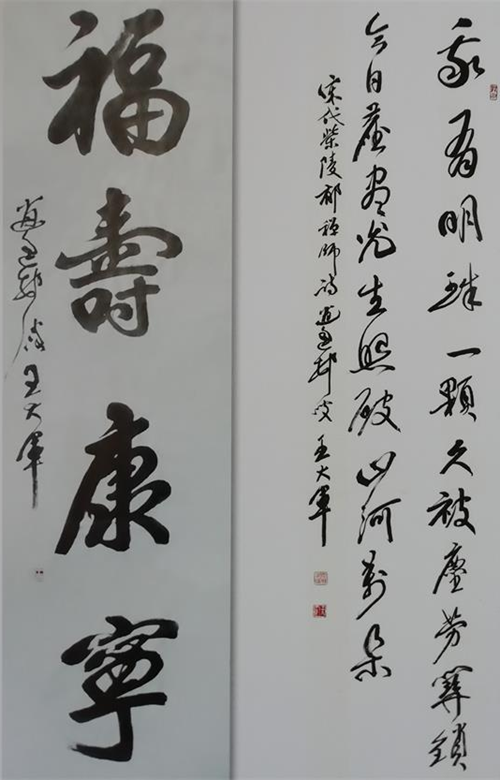 我有明珠一顆久被塵勞關鎖
今日塵盡光生照破山河萬朵
宋代柴陵郁禪師詩 逍遥邨叟 王大軍
福壽康寧
逍遥邨 王大軍